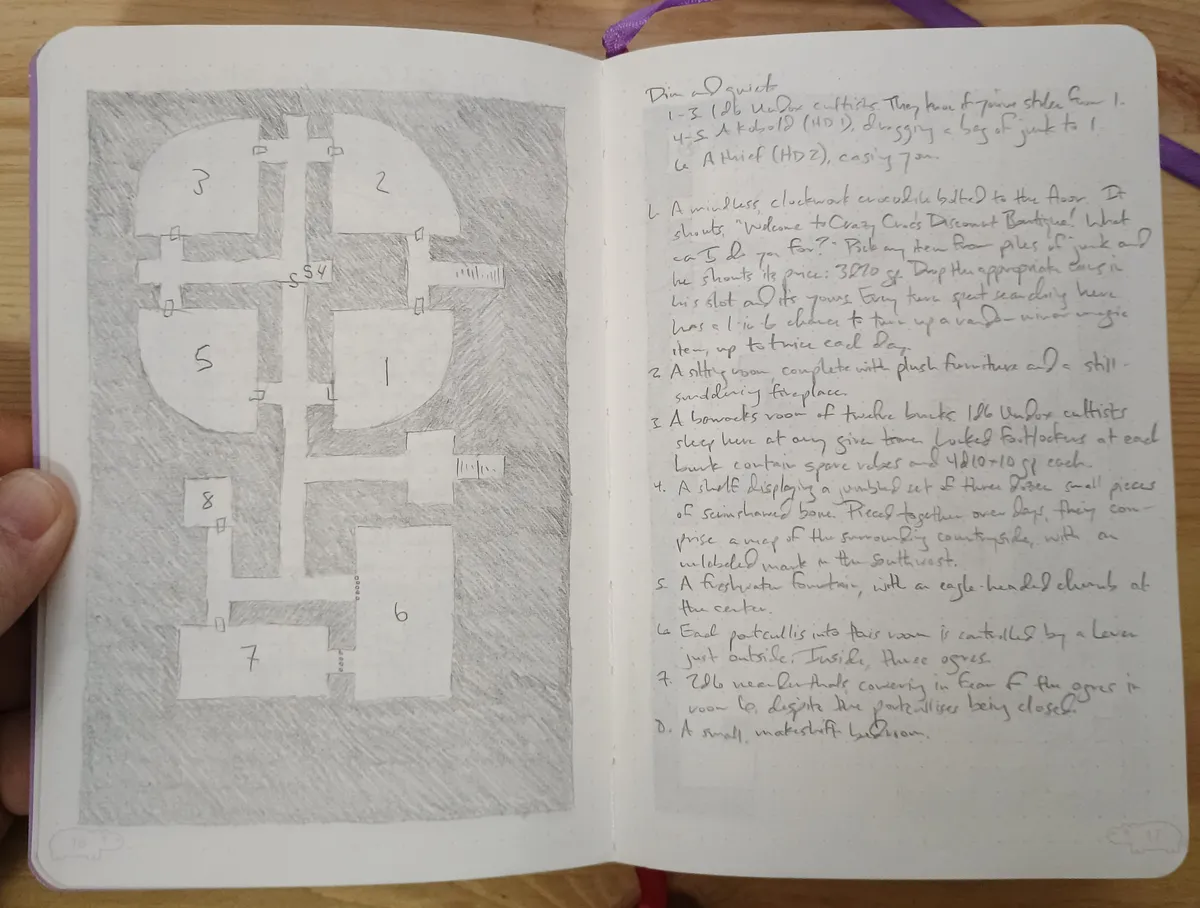 3
2
S S 4
5
1
8
6
7
Dim and quiet
1-3 1d6 Undox cultists. They know if you've stolen from 1.
4-5 A kobold (HD 1), dragging a bag of junk to 1.
6 A thief (HD 2), casing you.
1. A mindless, clockwork crocodile bolted to the floor. It
shouts, "Welcome to Crazy Croc's Discount Boutique! What
can I do you for?" Pick any item from piles of junk and
he shouts its price: 3d20 sp. Drop the appropriate coins in
his slot and its yours. Every turn spent searching here
has a 1-in-6 chance to turn up a random minor magic
item, up to twice each day.
2. A sitting room, complete with plush furniture and a still-
smoldering fireplace.
3. A barracks room of twelve bunks. 1d6 Undox cultists
sleep here at any given time. Locked footlockers at each
bunk contain spare robes and 4d10+10 sp each.
4. A shelf displaying a jumbled set of three dozen small pieces
of scrimshawed bone. Pieced together over days, they com-
prise a map of the surrounding countryside, with an
unlabeled mark in the southwest.
5. A freshwater fountain, with an eagle-headed cherub at
the center.
6. Each portcullis into this room is controlled by a lever
just outside. Inside, three ogres.
7. 2d6 neanderthals, cowering in fear of the ogres in
room 6, despite the portcullises being closed.
8. A small, makeshift bedroom.
16
17